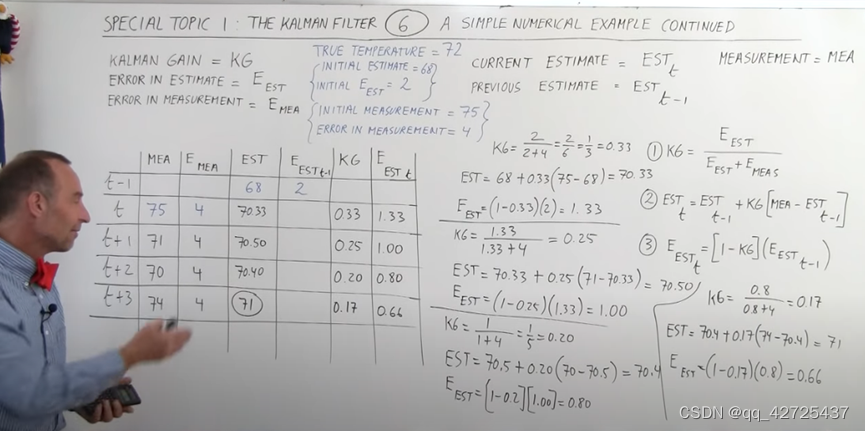 SPECIAL TOPIC 1 : THE KALMAN FILTER 6 A SIMPLE NUMERICAL EXAMPLE CONTINUED
KALMAN GAIN = KG
ERROR IN ESTIMATE = E EST
ERROR IN MEASUREMENT = E MEA
TRUE TEMPERATURE = 72
INITIAL ESTIMATE = 68
INITIAL E EST = 2
INITIAL MEASUREMENT = 75
ERROR IN MEASUREMENT = 4
CURRENT ESTIMATE = EST t
PREVIOUS ESTIMATE = EST t-1
MEASUREMENT = MEA
MEA E MEA EST E EST t-1 KG E EST t
t-1 68 2
t 75 4 70.33 0.33 1.33
t+1 71 4 70.50 0.25 1.00
t+2 70 4 70.40 0.20 0.80
t+3 74 4 71 0.17 0.66
KG = 2/(2+4) = 2/6 = 1/3 = 0.33
EST = 68 + 0.33(75-68) = 70.33
E EST = (1-0.33)(2) = 1.33
KG = 1.33/(1.33+4) = 0.25
EST = 70.33 + 0.25(71-70.33) = 70.50
E EST = (1-0.25)(1.33) = 1.00
KG = 1/(1+4) = 1/5 = 0.20
EST = 70.5 + 0.20(70-70.5) = 70.4
E EST = [1-0.2][1.00] = 0.80
① KG = E EST/(E EST + E MEAS
② EST t = EST t-1 + KG [MEA - EST t-1]
③ E EST t = [1-KG](E EST t-1)
KG = 0.8/(0.8+4) = 0.17
EST = 70.4 + 0.17(74-70.4) = 71
E EST = (1-0.17)(0.8) = 0.66
CSDN @qq_42725437